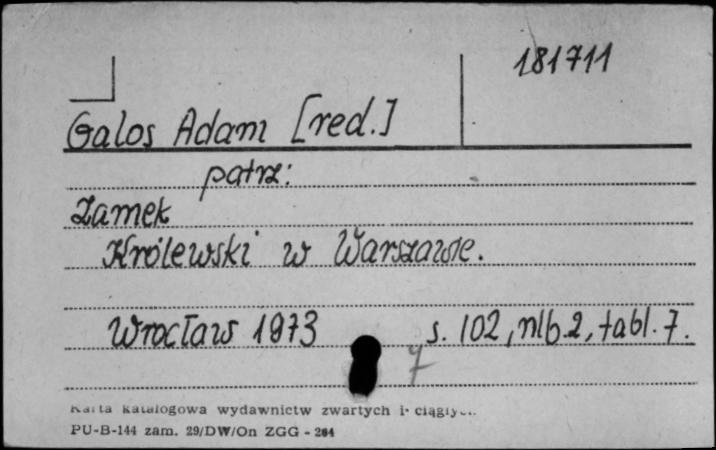 181711
Galos Adam [red.]
patrz:
Zamek
Królewski w Warszawie.
Wrocław 1973 s. 102, nlb. 2, tabl. 7.
7
Karta katalogowa wydawnictw zwartych i ciągłych
PU-B-144 zam. 29/DW/On ZGG - 264